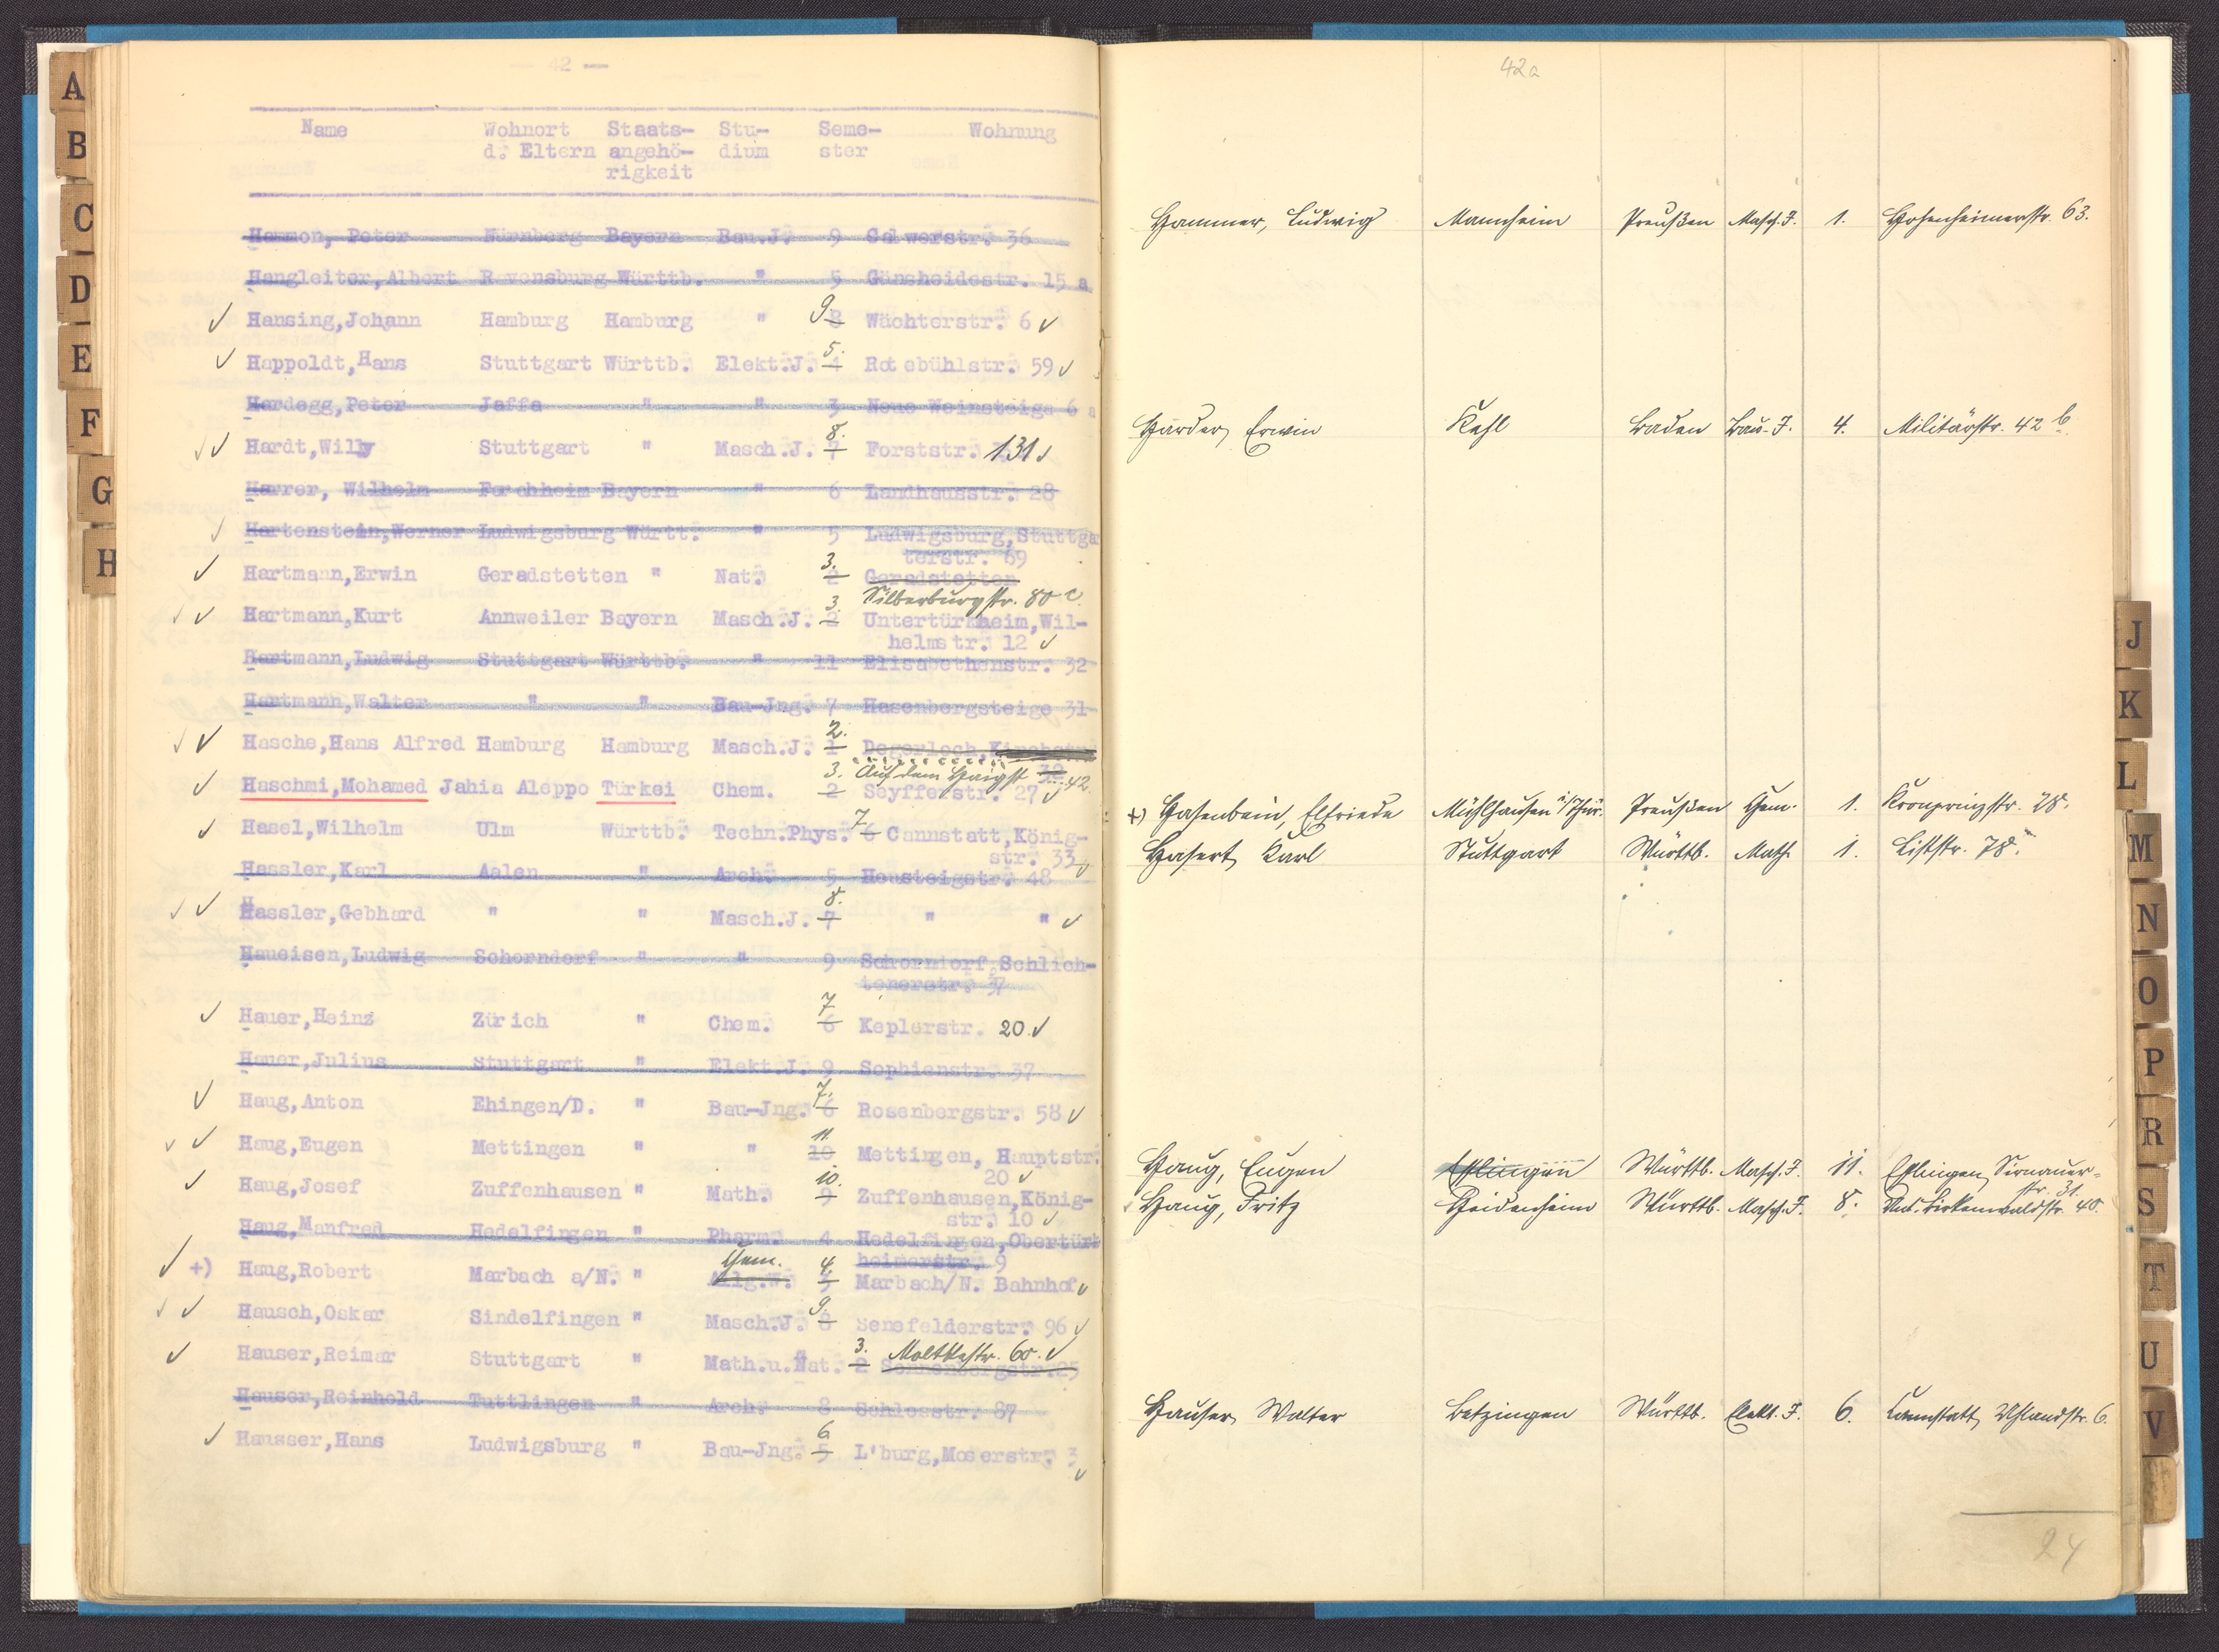 A
B
C
D
E
F
G
H
— 42 —
Name Wohnort Staats- Stu- Seme- Wohnung
d. Eltern angehö- dium ster
rigkeit
Hammon, Peter Nürnberg Bayern Bau.J. 9 Calwerstr. 36
Hangleiter,Albert Ravensburg Württb. " 5 Gänsheidestr. 15 a
✓ Hansing,Johann Hamburg Hamburg " 8 9. Wächterstr. 6 ✓
✓ Happoldt,Hans Stuttgart Württb. Elekt.J. 4 5. Rotebühlstr. 59 ✓
Hardegg,Peter Jaffa " " 3 Neue Weinsteige 6 a
✓✓ Hardt,Willy Stuttgart " Masch.J. 7 8. Forststr. 131 ✓
Harrer, Wilhelm Forchheim Bayern " 6 Landhausstr. 28
✓ Hartenstein,Werner Ludwigsburg Württ. " 5 Ludwigsburg,Stuttga
terstr. 69
✓ Hartmann,Erwin Geradstetten " Nat. 2 3. Geradstetten
Silberburgstr. 80 c.
✓✓ Hartmann,Kurt Annweiler Bayern Masch.J. 2 3. Untertürkheim,Wil-
helmstr. 12 ✓
Hartmann,Ludwig Stuttgart Württb. " 11 Elisabethenstr. 32
Hartmann,Walter " " Bau-Jng. 7 Hasenbergsteige 31
✓✓ Hasche,Hans Alfred Hamburg Hamburg Masch.J. 1 2. Degerloch,Kirchstr.
Auf dem Haigst 42.
✓ Haschmi,Mohamed Jahia Aleppo Türkei Chem. 2 3. Seyfferstr. 27 ✓
✓ Hasel,Wilhelm Ulm Württb. Techn.Phys. 6 7 Cannstatt,König-
str. 33 ✓
Hassler,Karl Aalen " Arch. 5 Heusteigstr. 48
✓✓ Hassler,Gebhard " " Masch.J. 7 8. " " ✓
Haueisen,Ludwig Schorndorf " " 9 Schorndorf,Schlich-
tenerstr. 37
✓ Hauer,Heinz Zürich " Chem. 6 7 Keplerstr. 20. ✓
Hauer,Julius Stuttgart " Elekt.J. 9 Sophienstr. 37
✓ Haug,Anton Ehingen/D. " Bau-Jng. 6 7. Rosenbergstr. 58 ✓
✓✓ Haug,Eugen Mettingen " " 10 11. Mettingen, Hauptstr.
20 ✓
✓ Haug,Josef Zuffenhausen " Math. 9 10. Zuffenhausen,König-
str. 10 ✓
Haug,Manfred Hedelfingen " Pharm. 4 Hedelfingen,Obertürk
heimerstr. 9
✓ +) Haug,Robert Marbach a/N. " Allg.W. Chem. 3 4 Marbach/N. Bahnhof ✓
✓✓ Hausch,Oskar Sindelfingen " Masch.J. 8 9. Senefelderstr. 96 ✓
✓ Hauser,Reimar Stuttgart " Math.u.Nat. 2 3. Moltkestr. 60. ✓
Sonnenbergstr.25
Hauser,Reinhold Tuttlingen " Arch. 8 Schlosstr. 87
✓ Hausser,Hans Ludwigsburg " Bau-Jng. 5 6 L'burg,Moserstr. 3 ✓
42a
Hammer, Ludwig Mannheim Preußen Masch.J. 1. Hohenheimerstr. 63.
Harder, Erwin Kehl Baden Bau-J. 4. Militärstr. 42 b.
+) Hasenbein, Elfriede Mühlhausen i/Thür. Preußen Chem. 1. Kronprinzstr. 28.
Hasert, Karl Stuttgart Württb. Math. 1. Liststr. 78.
Haug, Eugen Esslingen Württb. Masch.J. 11. Esslingen, Sirnauer-
str. 31.
Haug, Fritz Heidenheim Württb. Masch.J. 8. Birkenwaldstr. 40.
Hauser, Walter Betzingen Württb. Elekt. J. 6. Cannstatt, Uhlandstr. 6.
24
J
K
L
M
N
O
P
R
S
T
U
V